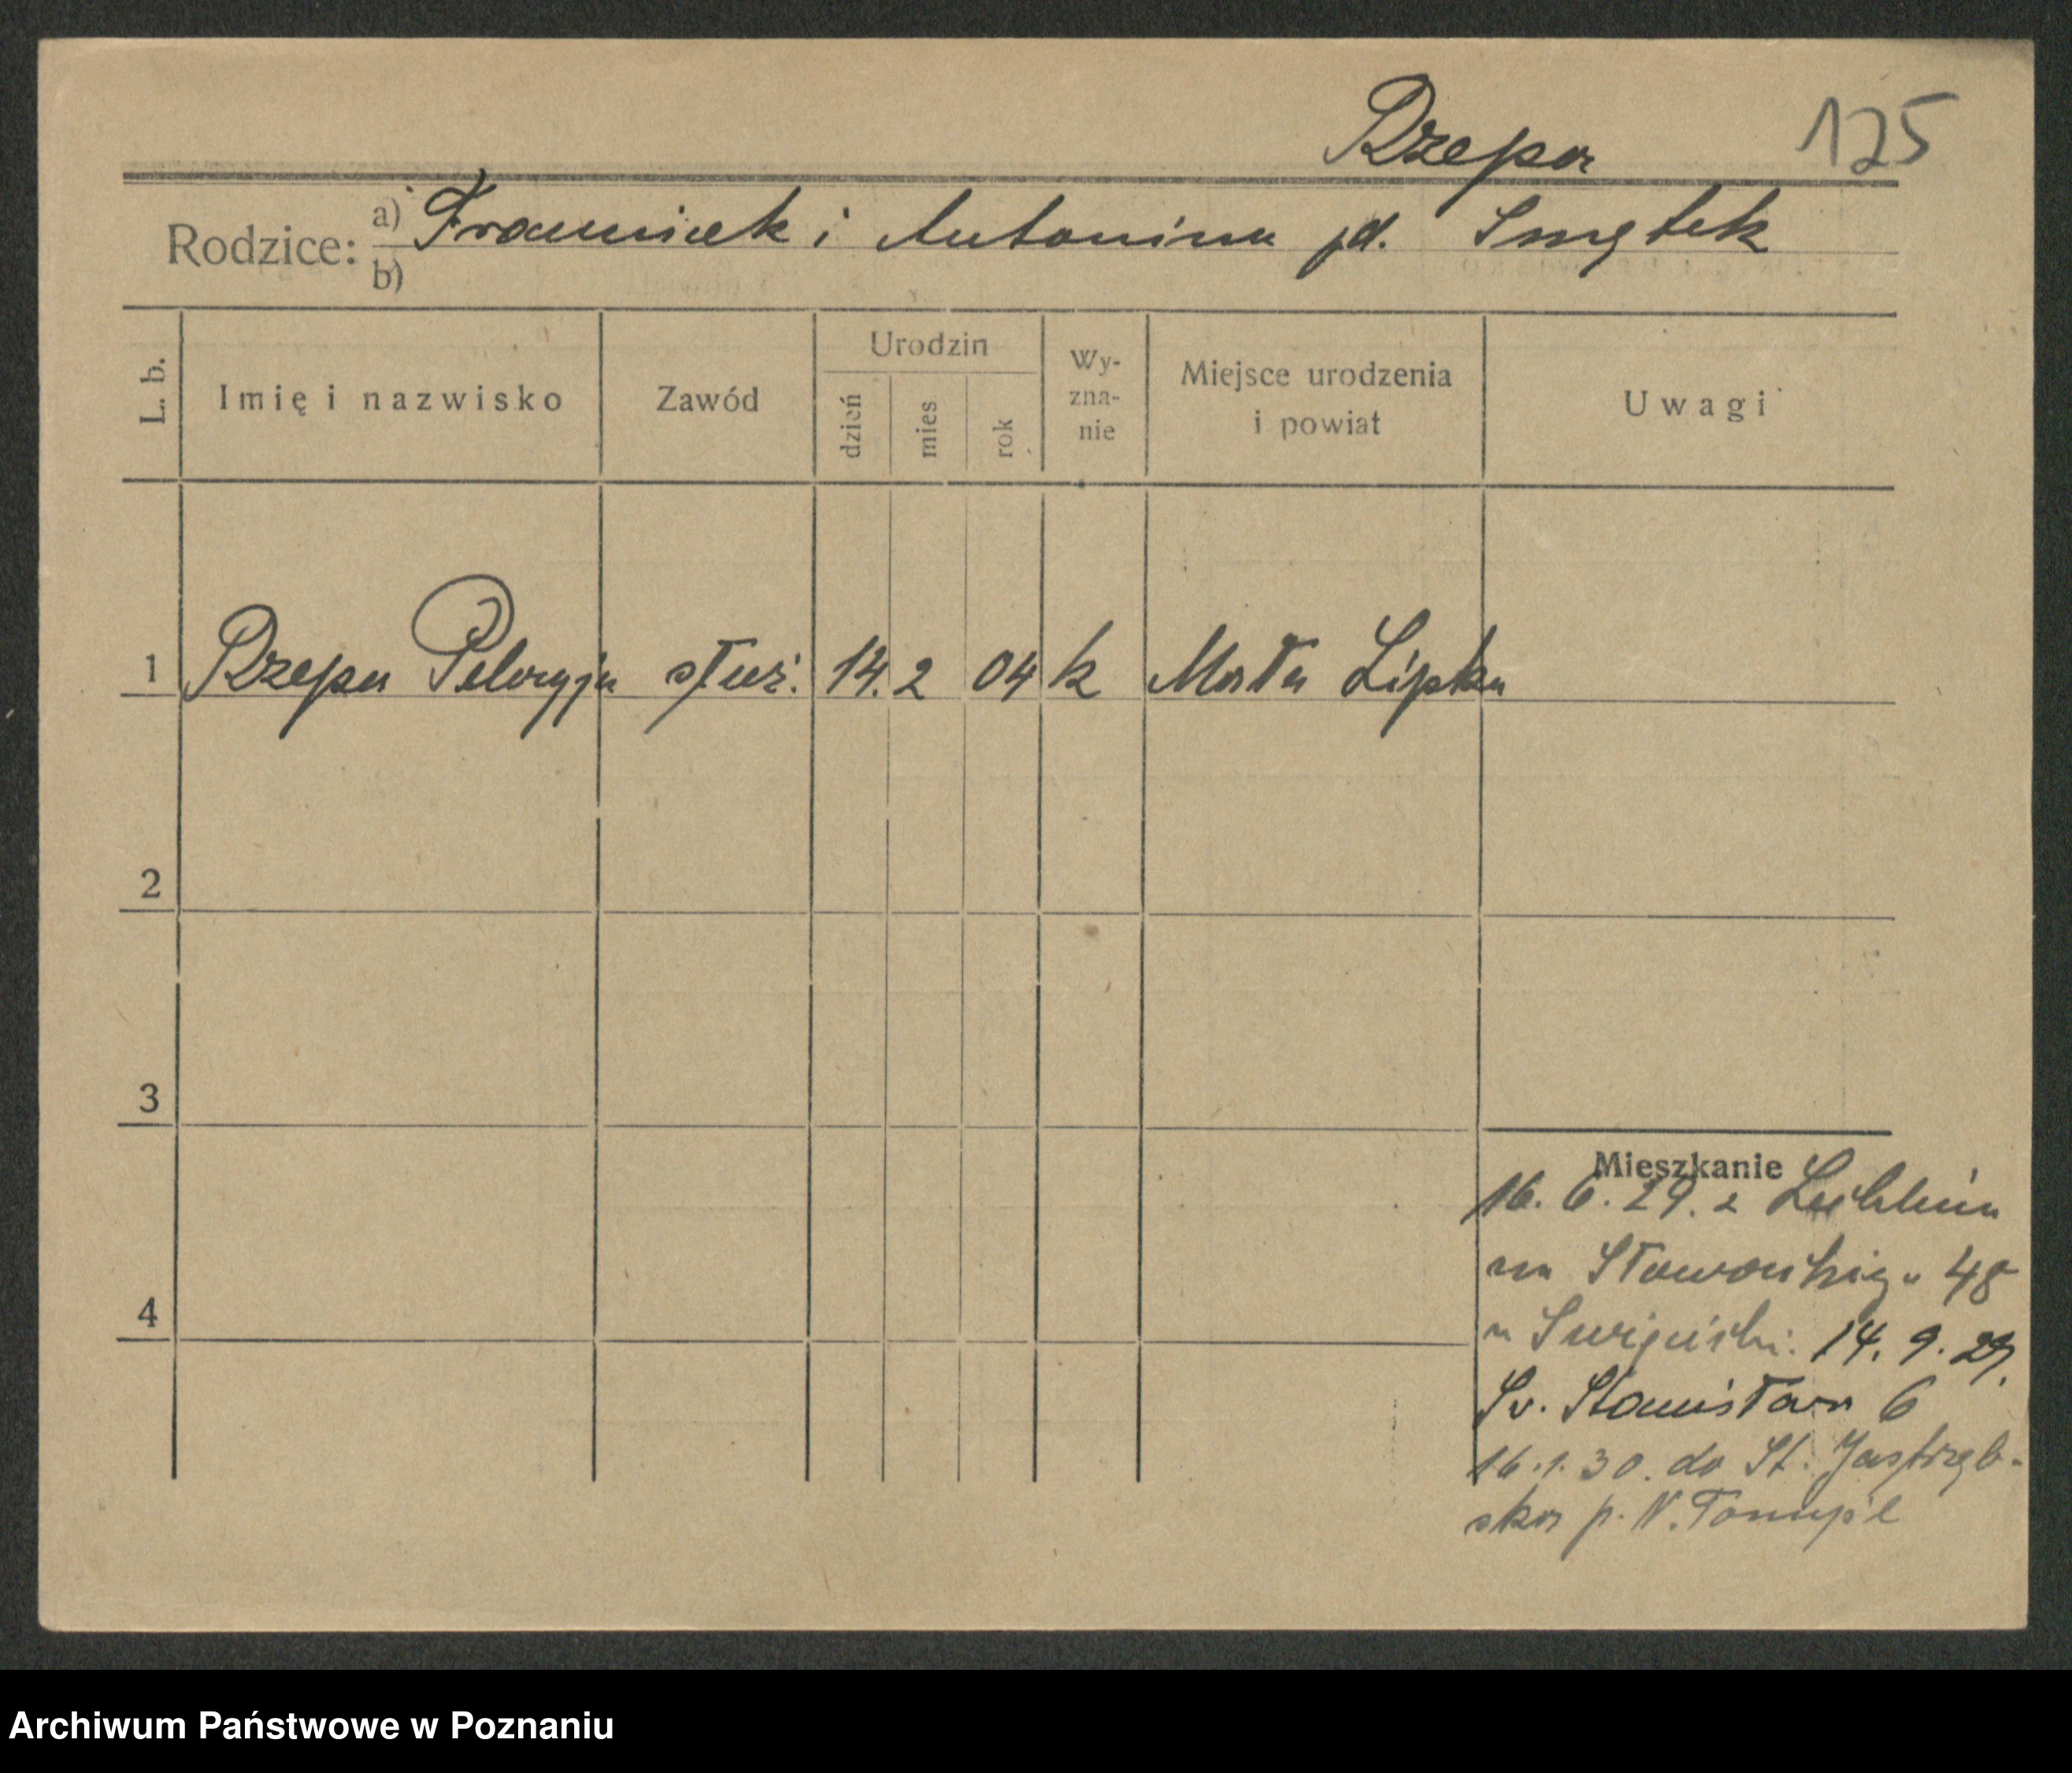 Rzepa 125
Rodzice: a) Franciszek i Antonina pd. Smętek
b)
L. b. Imię i nazwisko Zawód Urodzin dzień mies rok Wy-zna-nie Miejsce urodzenia i powiat Uwagi
1 Rzepa Pelagja służ. 14. 2 04 k Mała Lipka
2
3
4
Mieszkanie
16. 6. 29. z
48
14. 9. 29.
Św. Stanisława 6
16. 1. 30. do St. Jastrzęb-
ska p. N. Tomyśl
Archiwum Państwowe w Poznaniu